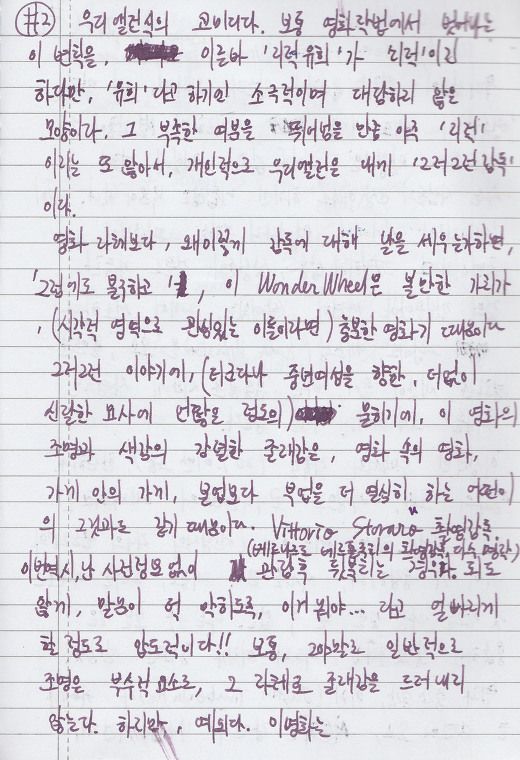 #2 우리 앨런식의 코미디다. 보통 영화 작법에서 벗어나는
이 번칙을, 이른바 '리럭유희'가 리럭이긴
하다만, '유희'라고 하기엔 소극적이며 대담하지 않은
모양이라. 그 부족한 여분을 뛰어넘을 만큼 아주
이지는 또 않아서, 개인적으로 우리앨런은 내게 '그러그런감독'
이다.
영화 자체보다, 왜이렇게 감독에 대해 날을 세우는가하면,
'그럼에도 불구하고', 이 Wonder Wheel은 볼만한 가치가
, (시각적 영역으로 관심있는 이들이라면) 충분한 영화기 때문이다
그러그런 이야기에, (더군다나 중년여성을 향한, 더없이
신랄한 묘사에 언짢을 정도의) 불하기에, 이 영화의
조명과 색감의 강렬한 존재감은, 영화 속의 영화,
가게 안의 가게, 본업보다 부업을 더 열심히 하는 어떤이
의 그것과도 같기 때문이다. Vittorio Storaro 촬영감독.
(베르나르도 베르톨루치의 촬영감독, 다수 명작)
이번역시, 난 사전정보 없이 관람후 뒷북치는 격
않게, 말문이 턱 막히도록, 이거 뭐야... 라고 얼빠지게
할 정도로 압도적이다!! 보통, 그야말로 일반적으로
조명은 부수적 요소로, 그 자체로 존재감을 드러내지
않는다. 하지만, 예외다. 이영화는